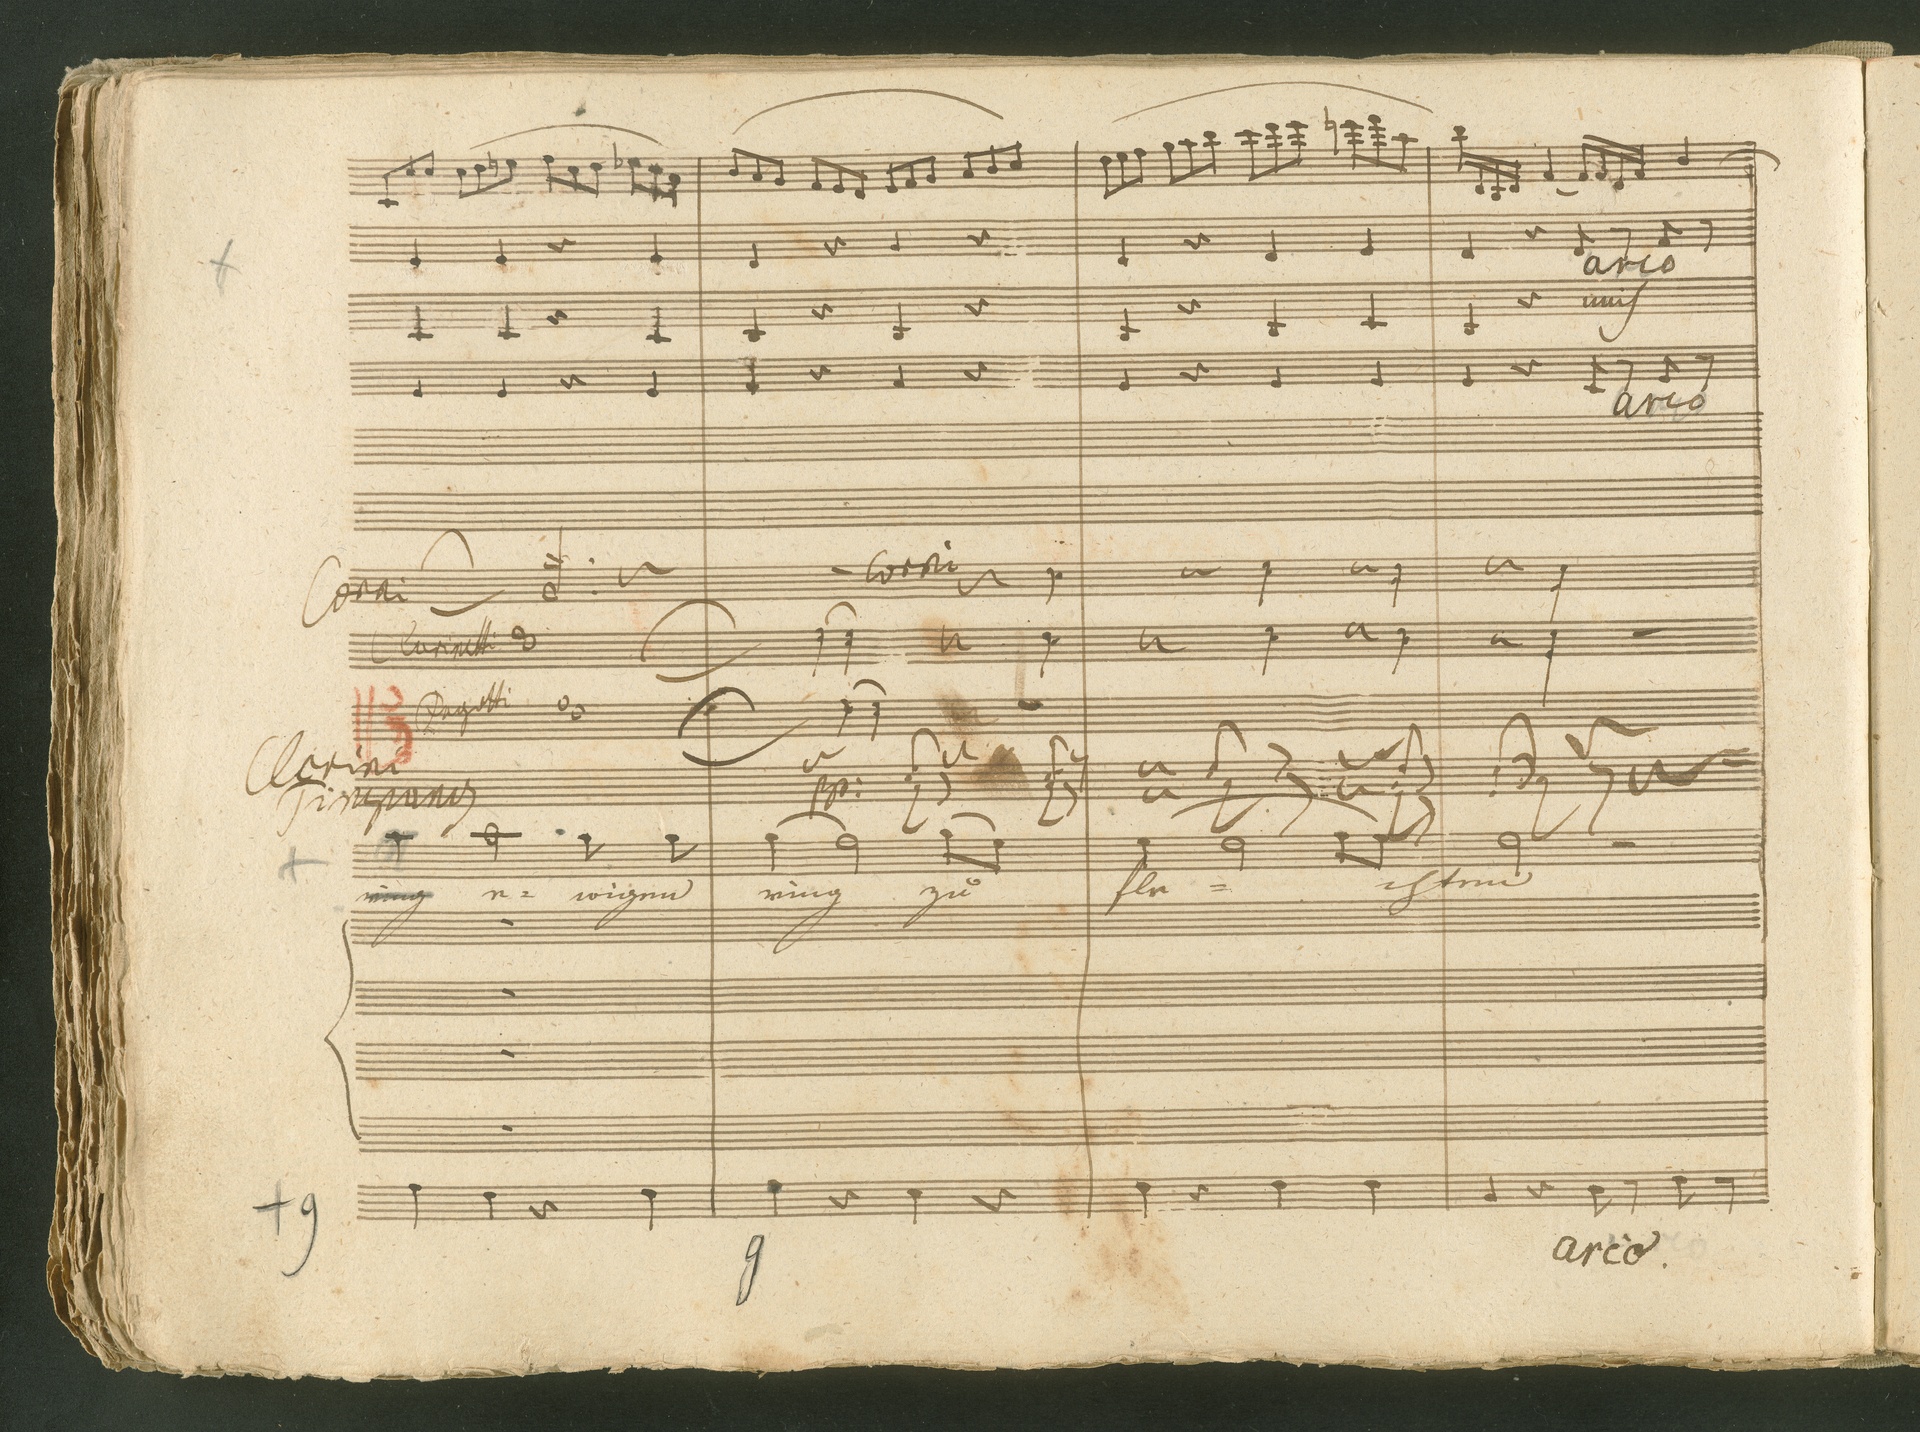 arco
unis
arco
Corni
Corni
Clarinetti
Fagotti
Clarini
pp:
Timpani
ring e= wigen ring zu fle = chten
+9
9
arco.